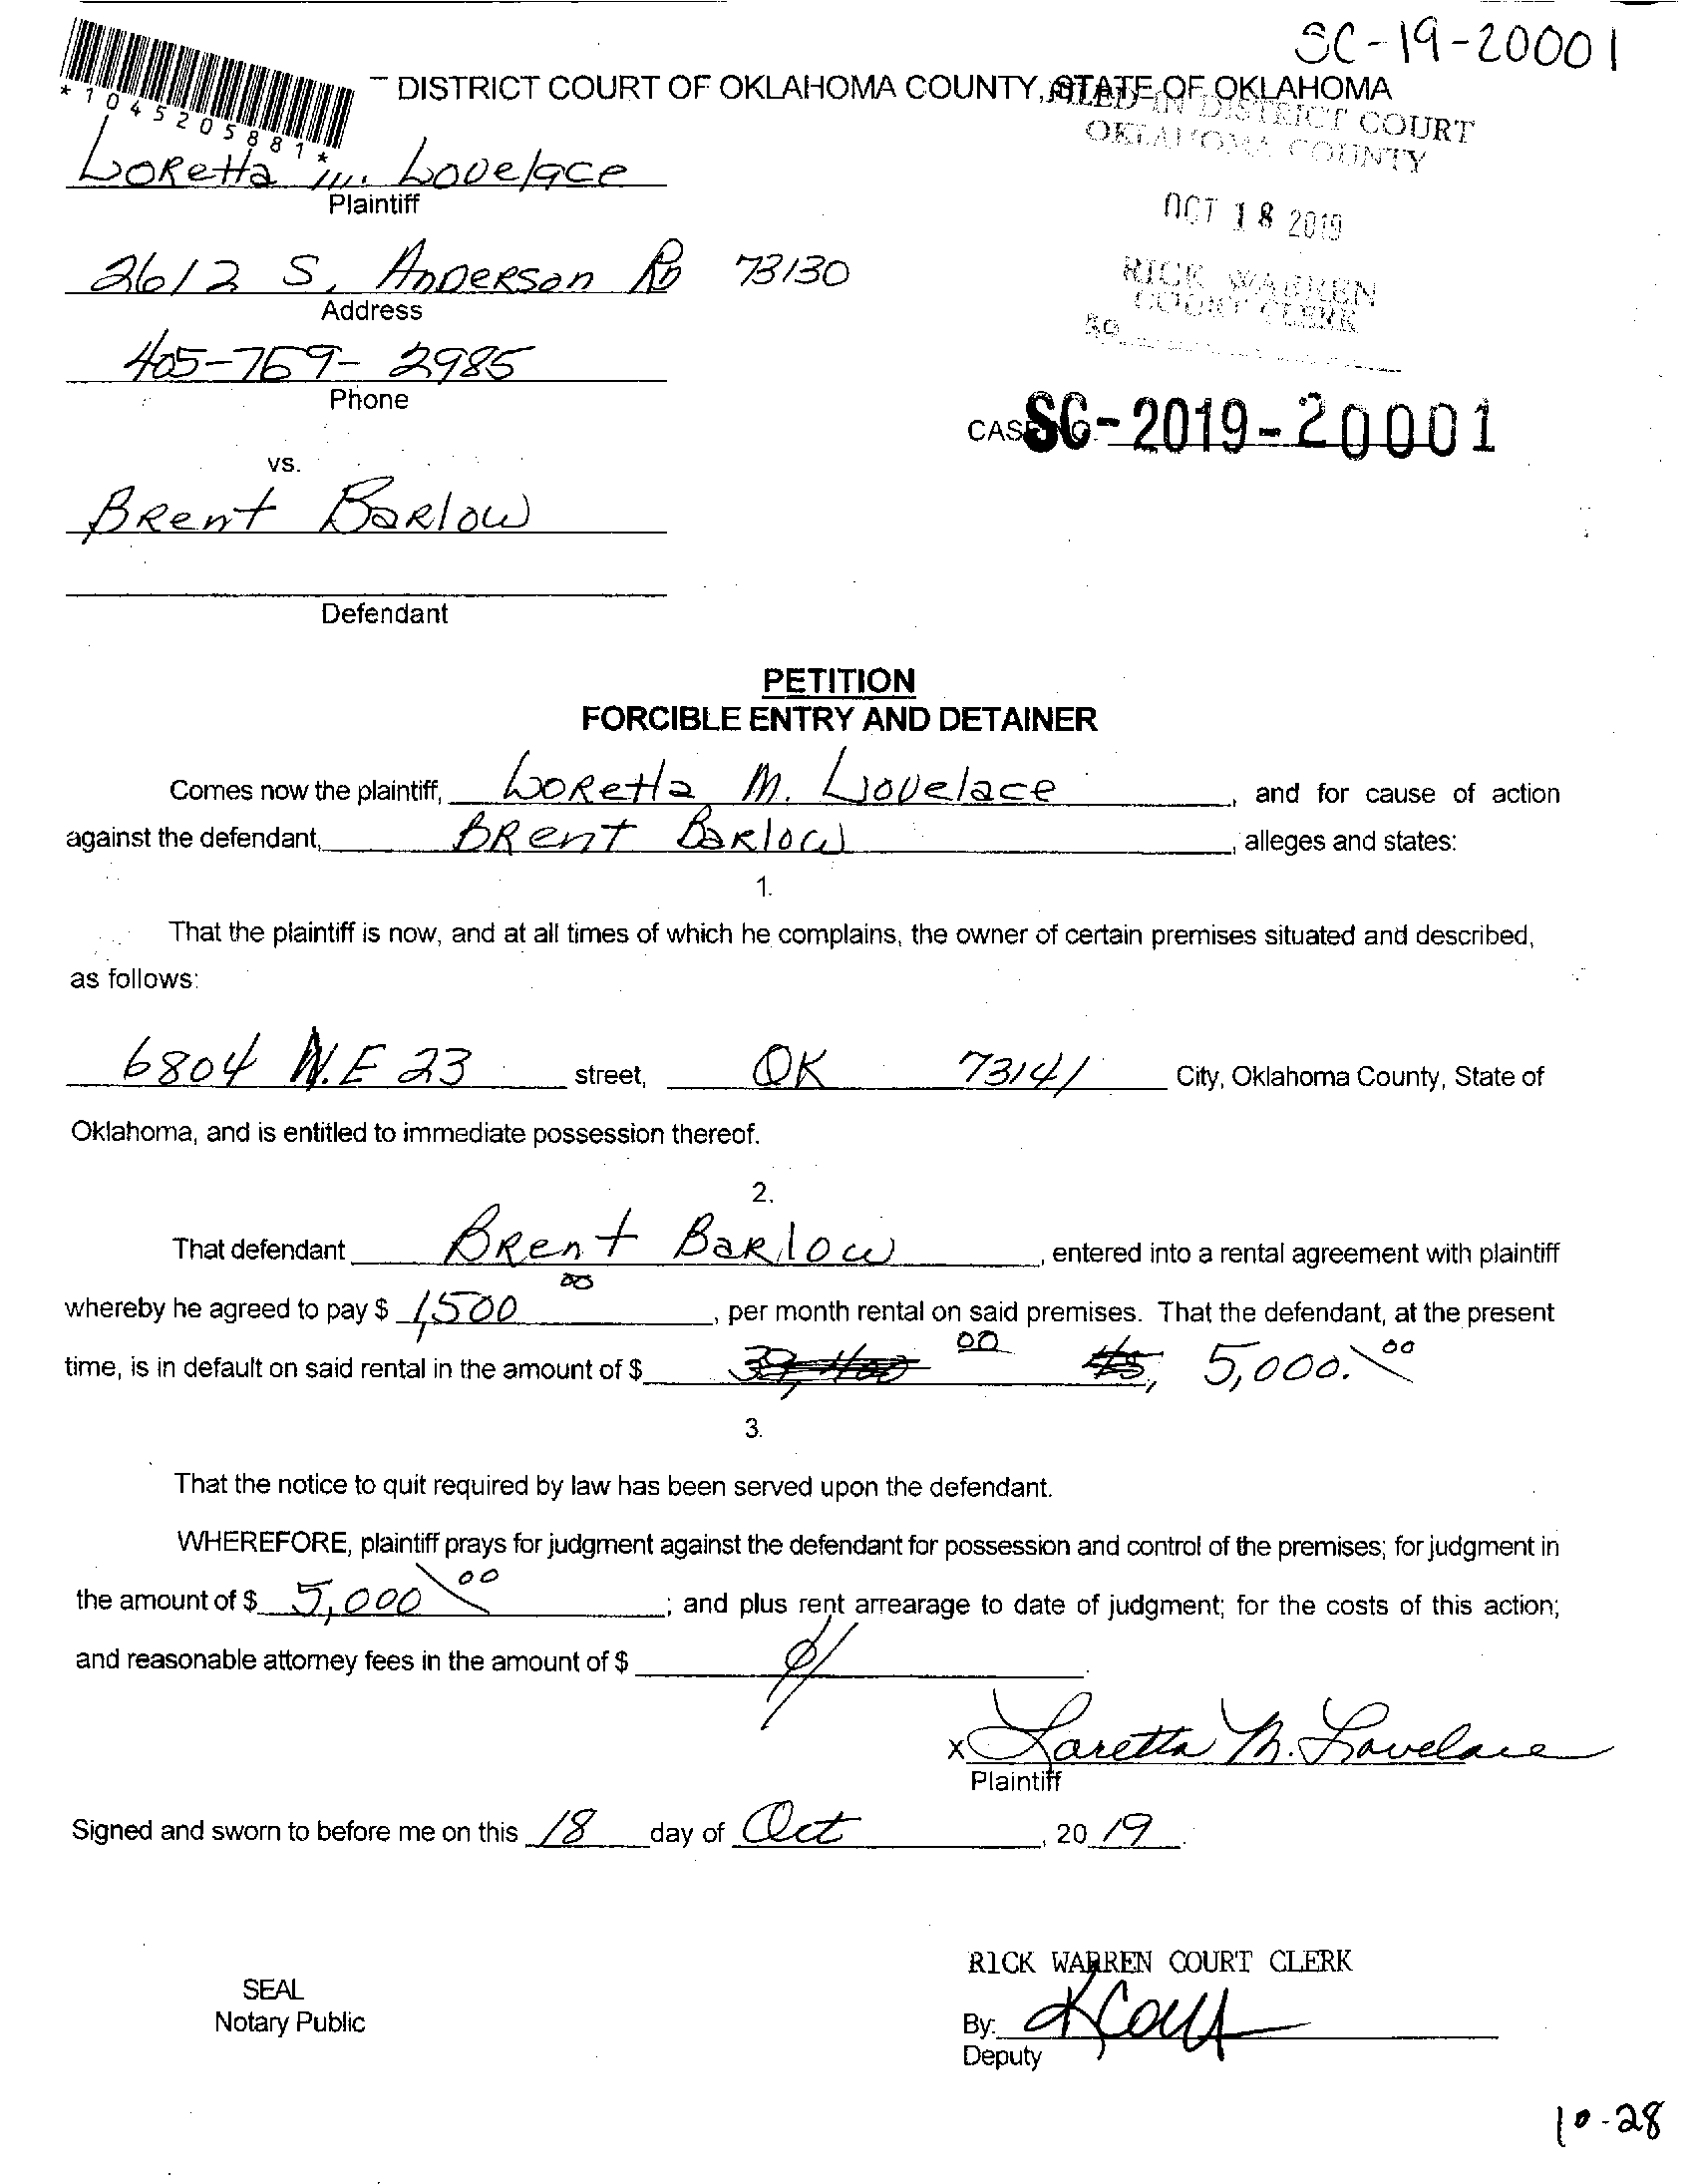 SC-19-20001
*1045205881*
DISTRICT COURT OF OKLAHOMA COUNTY, STATE OF OKLAHOMA
FILED IN DISTRICT COURT
OKLAHOMA COUNTY
Loretta M. Lovelace
Plaintiff
OCT 18 2019
2612 S. Anderson Rd 73130
Address
RICK WARREN
COURT CLERK
405-769-2985
Phone
CASE NO. SC-2019-20001
vs.
Brent Barlow
Defendant
PETITION
FORCIBLE ENTRY AND DETAINER
Comes now the plaintiff, Loretta M. Lovelace, and for cause of action
against the defendant, Brent Barlow, alleges and states:
1.
That the plaintiff is now, and at all times of which he complains, the owner of certain premises situated and described,
as follows:
6804 N.E 23 street, OK 73141 City, Oklahoma County, State of
Oklahoma, and is entitled to immediate possession thereof.
2.
That defendant Brent Barlow, entered into a rental agreement with plaintiff
whereby he agreed to pay $ 1,500 00, per month rental on said premises. That the defendant, at the present
time, is in default on said rental in the amount of $ 00 5,000.00
3.
That the notice to quit required by law has been served upon the defendant.
WHEREFORE, plaintiff prays for judgment against the defendant for possession and control of the premises; for judgment in
the amount of $ 5,000 00; and plus rent arrearage to date of judgment; for the costs of this action;
and reasonable attorney fees in the amount of $
x Loretta M. Lovelace
Plaintiff
Signed and sworn to before me on this 18 day of Oct, 20 19.
RICK WARREN COURT CLERK
SEAL
Notary Public
By:
Deputy
10-28